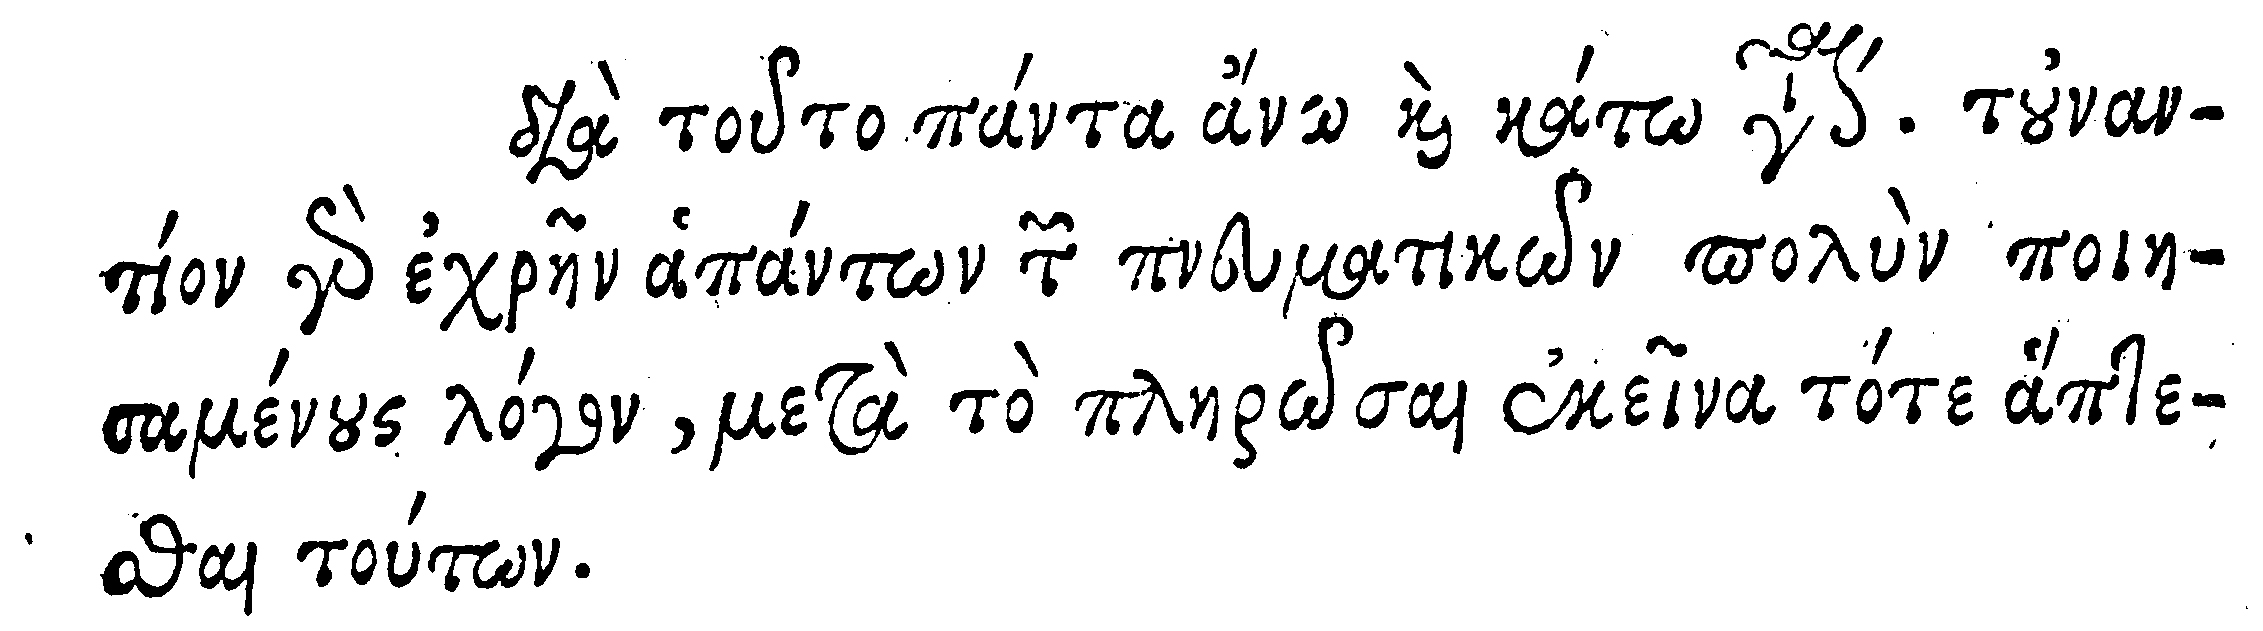 διὰ τοῦτο πάντα ἄνω καὶ κάτω . τοὐναν-
τίον γὰρ ἐχρῆν ἁπάντων τῶν πνευματικῶν πολὺν ποιη-
σαμένους λόγον, μετὰ τὸ πληρῶσαι ἐκεῖνα τότε ἅπτε-
σθαι τούτων.